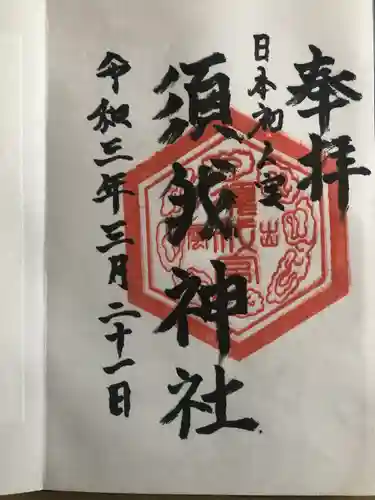 奉拝
日本初之宮
須我神社
令和三年三月二十一日